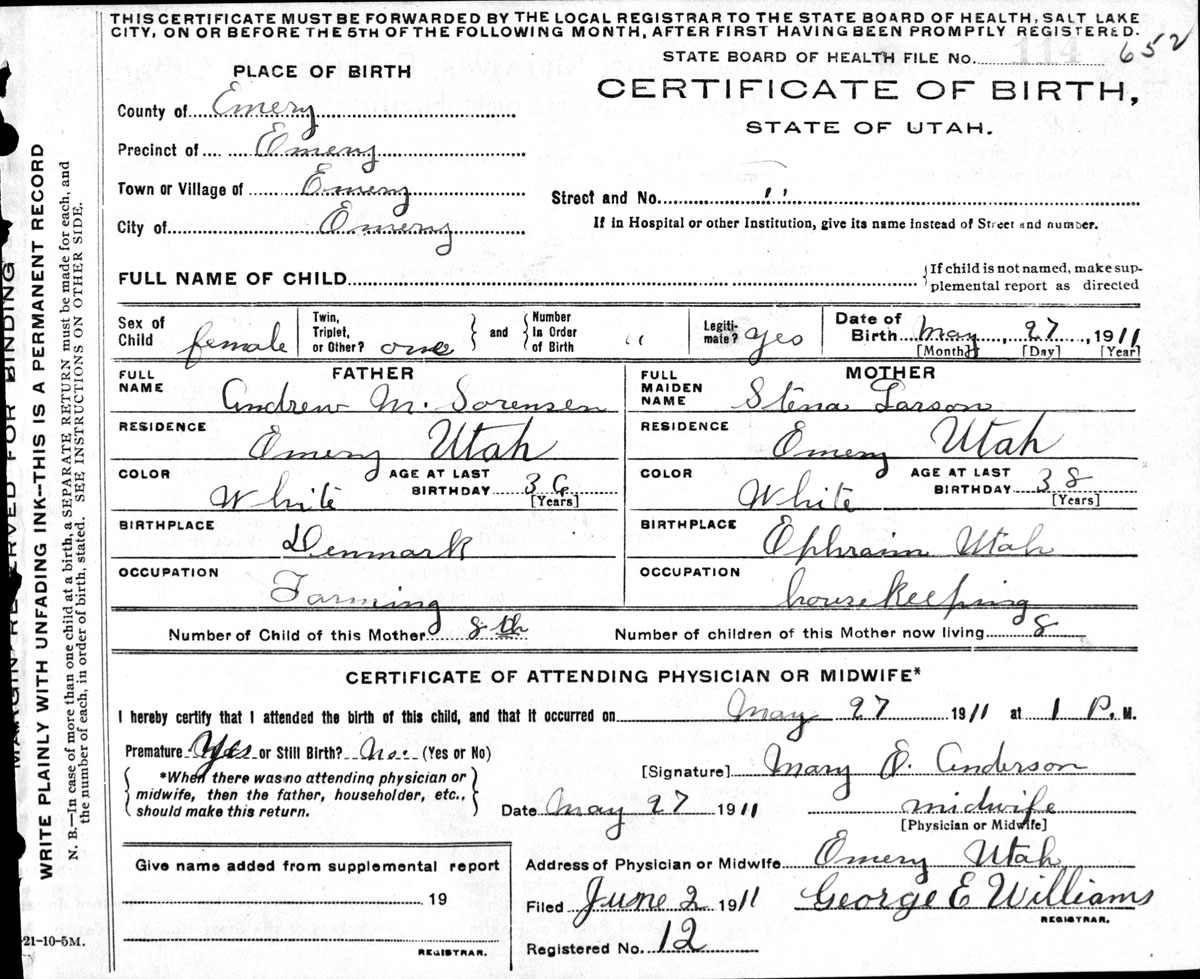 THIS CERTIFICATE MUST BE FORWARDED BY THE LOCAL REGISTRAR TO THE STATE BOARD OF HEALTH, SALT LAKE
CITY, ON OR BEFORE THE 5TH OF THE FOLLOWING MONTH, AFTER FIRST HAVING BEEN PROMPTLY REGISTERED.
STATE BOARD OF HEALTH FILE No. 114 652
PLACE OF BIRTH
CERTIFICATE OF BIRTH,
STATE OF UTAH.
County of Emery
Precinct of Emery
Town or Village of Emery
Street and No. "
City of Emery
If in Hospital or other Institution, give its name instead of Street and number.
FULL NAME OF CHILD
If child is not named, make sup-
plemental report as directed
Sex of Child female
Twin, Triplet, or Other? one
and
Number In Order of Birth "
Legiti-mate? yes
Date of Birth May, 27, 1911
[Month] [Day] [Year]
FATHER
MOTHER
FULL NAME Andrew M. Sorensen
FULL MAIDEN NAME Stena Larson
RESIDENCE Emery Utah
RESIDENCE Emery Utah
COLOR White AGE AT LAST BIRTHDAY 36 [Years]
COLOR White AGE AT LAST BIRTHDAY 38 [Years]
BIRTHPLACE Denmark
BIRTHPLACE Ephraim Utah
OCCUPATION Farming
OCCUPATION housekeeping
Number of Child of this Mother 8th
Number of children of this Mother now living 8
CERTIFICATE OF ATTENDING PHYSICIAN OR MIDWIFE*
I hereby certify that I attended the birth of this child, and that it occurred on May 27 1911 at 1 P. M.
Premature Yes or Still Birth? No. (Yes or No)
*When there was no attending physician or
midwife, then the father, householder, etc.,
should make this return.
[Signature] Mary E. Anderson
Date May 27 1911
midwife
[Physician or Midwife]
Give name added from supplemental report
19
REGISTRAR.
Address of Physician or Midwife Emery Utah
Filed June 2 1911 George E Williams
REGISTRAR.
Registered No. 12
21-10-5M.
MARGIN RESERVED FOR BINDING
WRITE PLAINLY WITH UNFADING INK--THIS IS A PERMANENT RECORD
N. B.—In case of more than one child at a birth, a SEPARATE RETURN must be made for each, and
the number of each, in order of birth, stated. SEE INSTRUCTIONS ON OTHER SIDE.